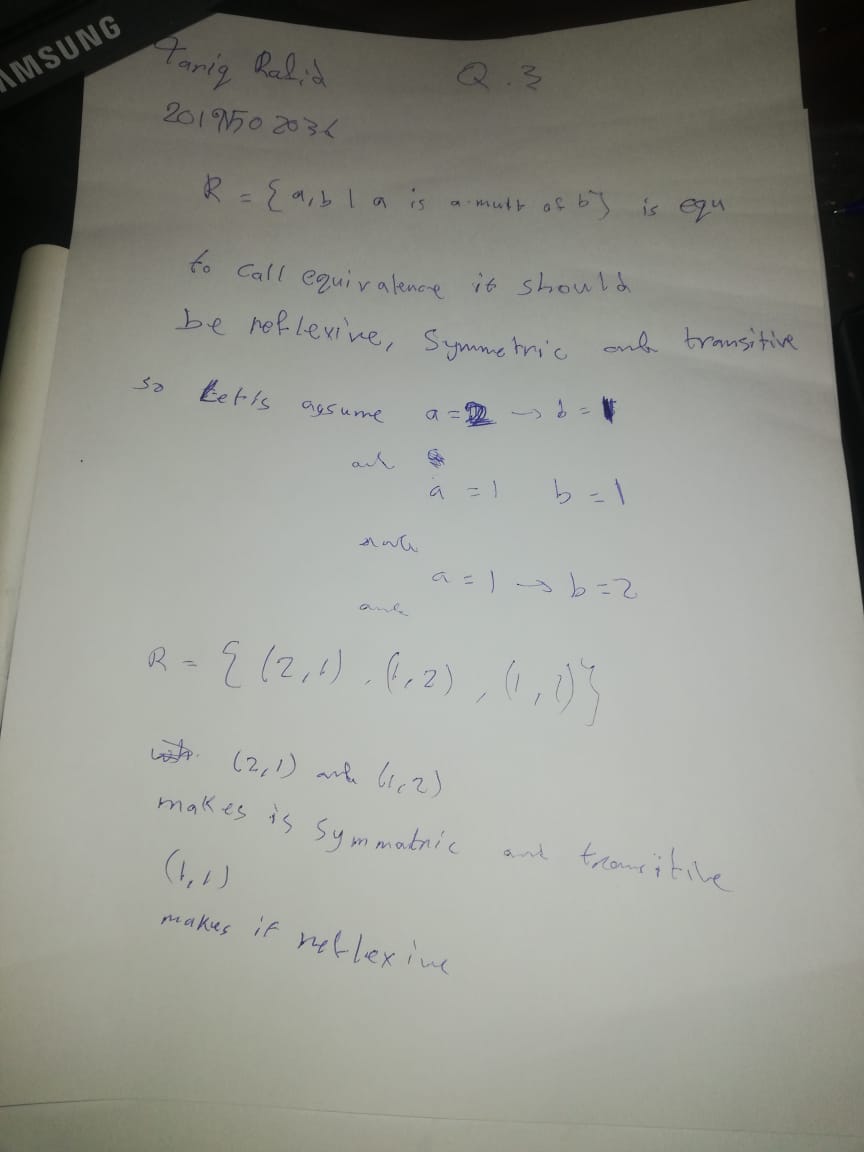 AMSUNG
Tariq Rafid Q.3
R = { a,b | a is a mult of b } is equ
to call equivalence it should
be reflexive, Symmetric and transitive
so Let's assume a = 2 → b = 1
and
a = 1 b = 1
and
a = 1 → b = 2
and
R = { (2,1) , (1,2) , (1,1) }
(2,1) and (1,2)
makes is Symmatric and transitive
(1,1)
makes it reflexive